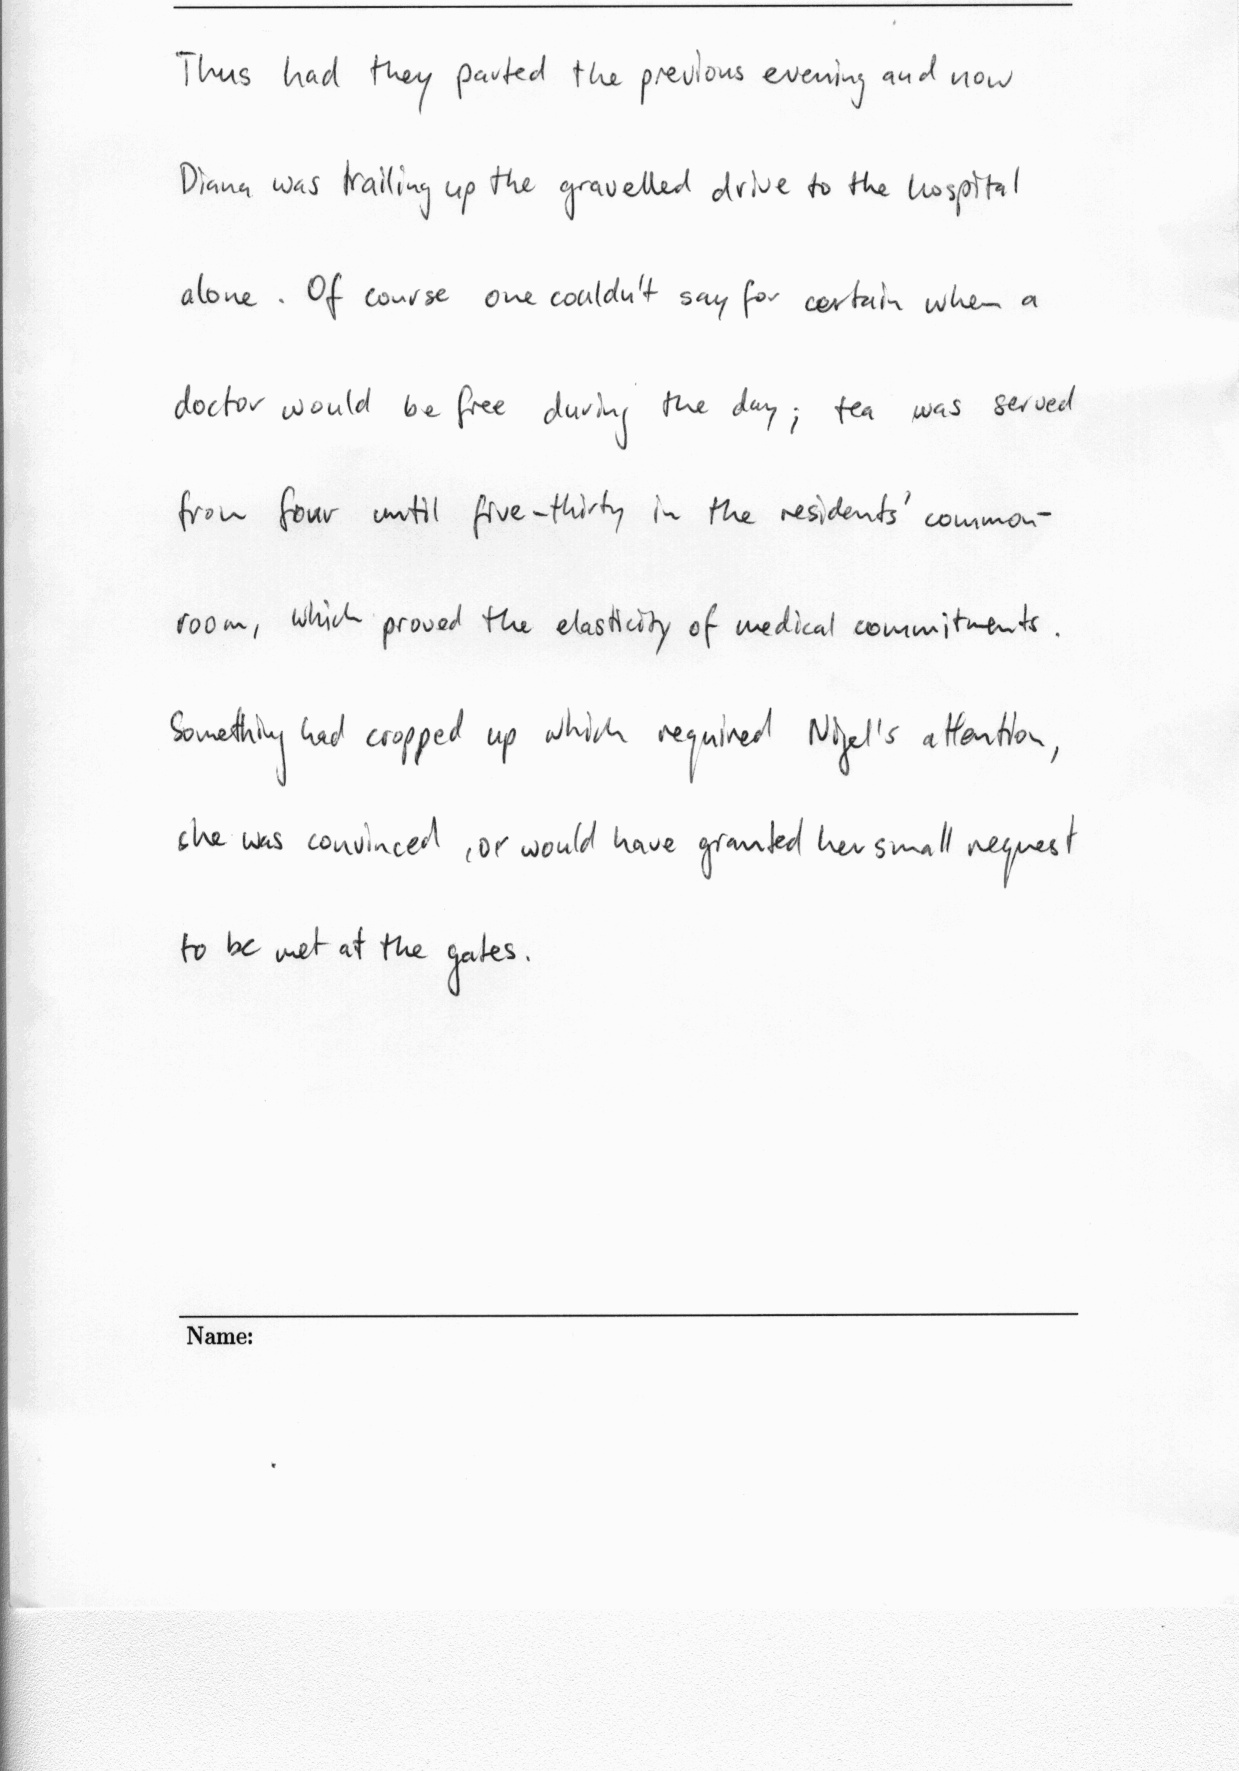 Thus had they parted the previous evening and now
Diana was trailing up the gravelled drive to the hospital
alone . Of course one couldn't say for certain when a
doctor would be free during the day ; tea was served
from four until five-thirty in the residents' common-
room, which proved the elasticity of medical commitments .
Something had cropped up which required Nigel's attention,
she was convinced , or would have granted her small request
to be met at the gates .
Name: